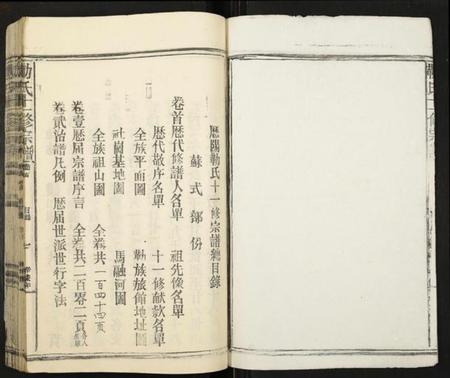 歷陽勒氏十一修宗譜總目錄
蘇式部份
卷首歷代修譜人名單 祖先像名單
歷代敘序名單 十一修献款名單
全族平面圖 勒族旅館地址圖
社樹基地圖 馬融河圖
全族祖山圖 全卷共一百四十四頁
卷壹歷屆宗譜序言 全卷共二百零二頁
卷貳治譜凡例 歷屆世派世行字法
勒氏十一修宗譜